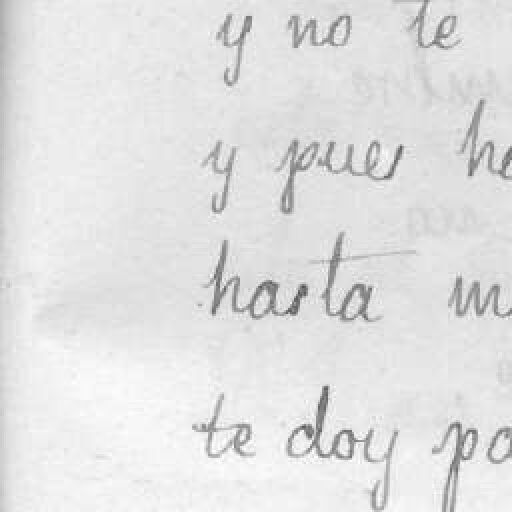 y no te
y pues
hasta
te doy